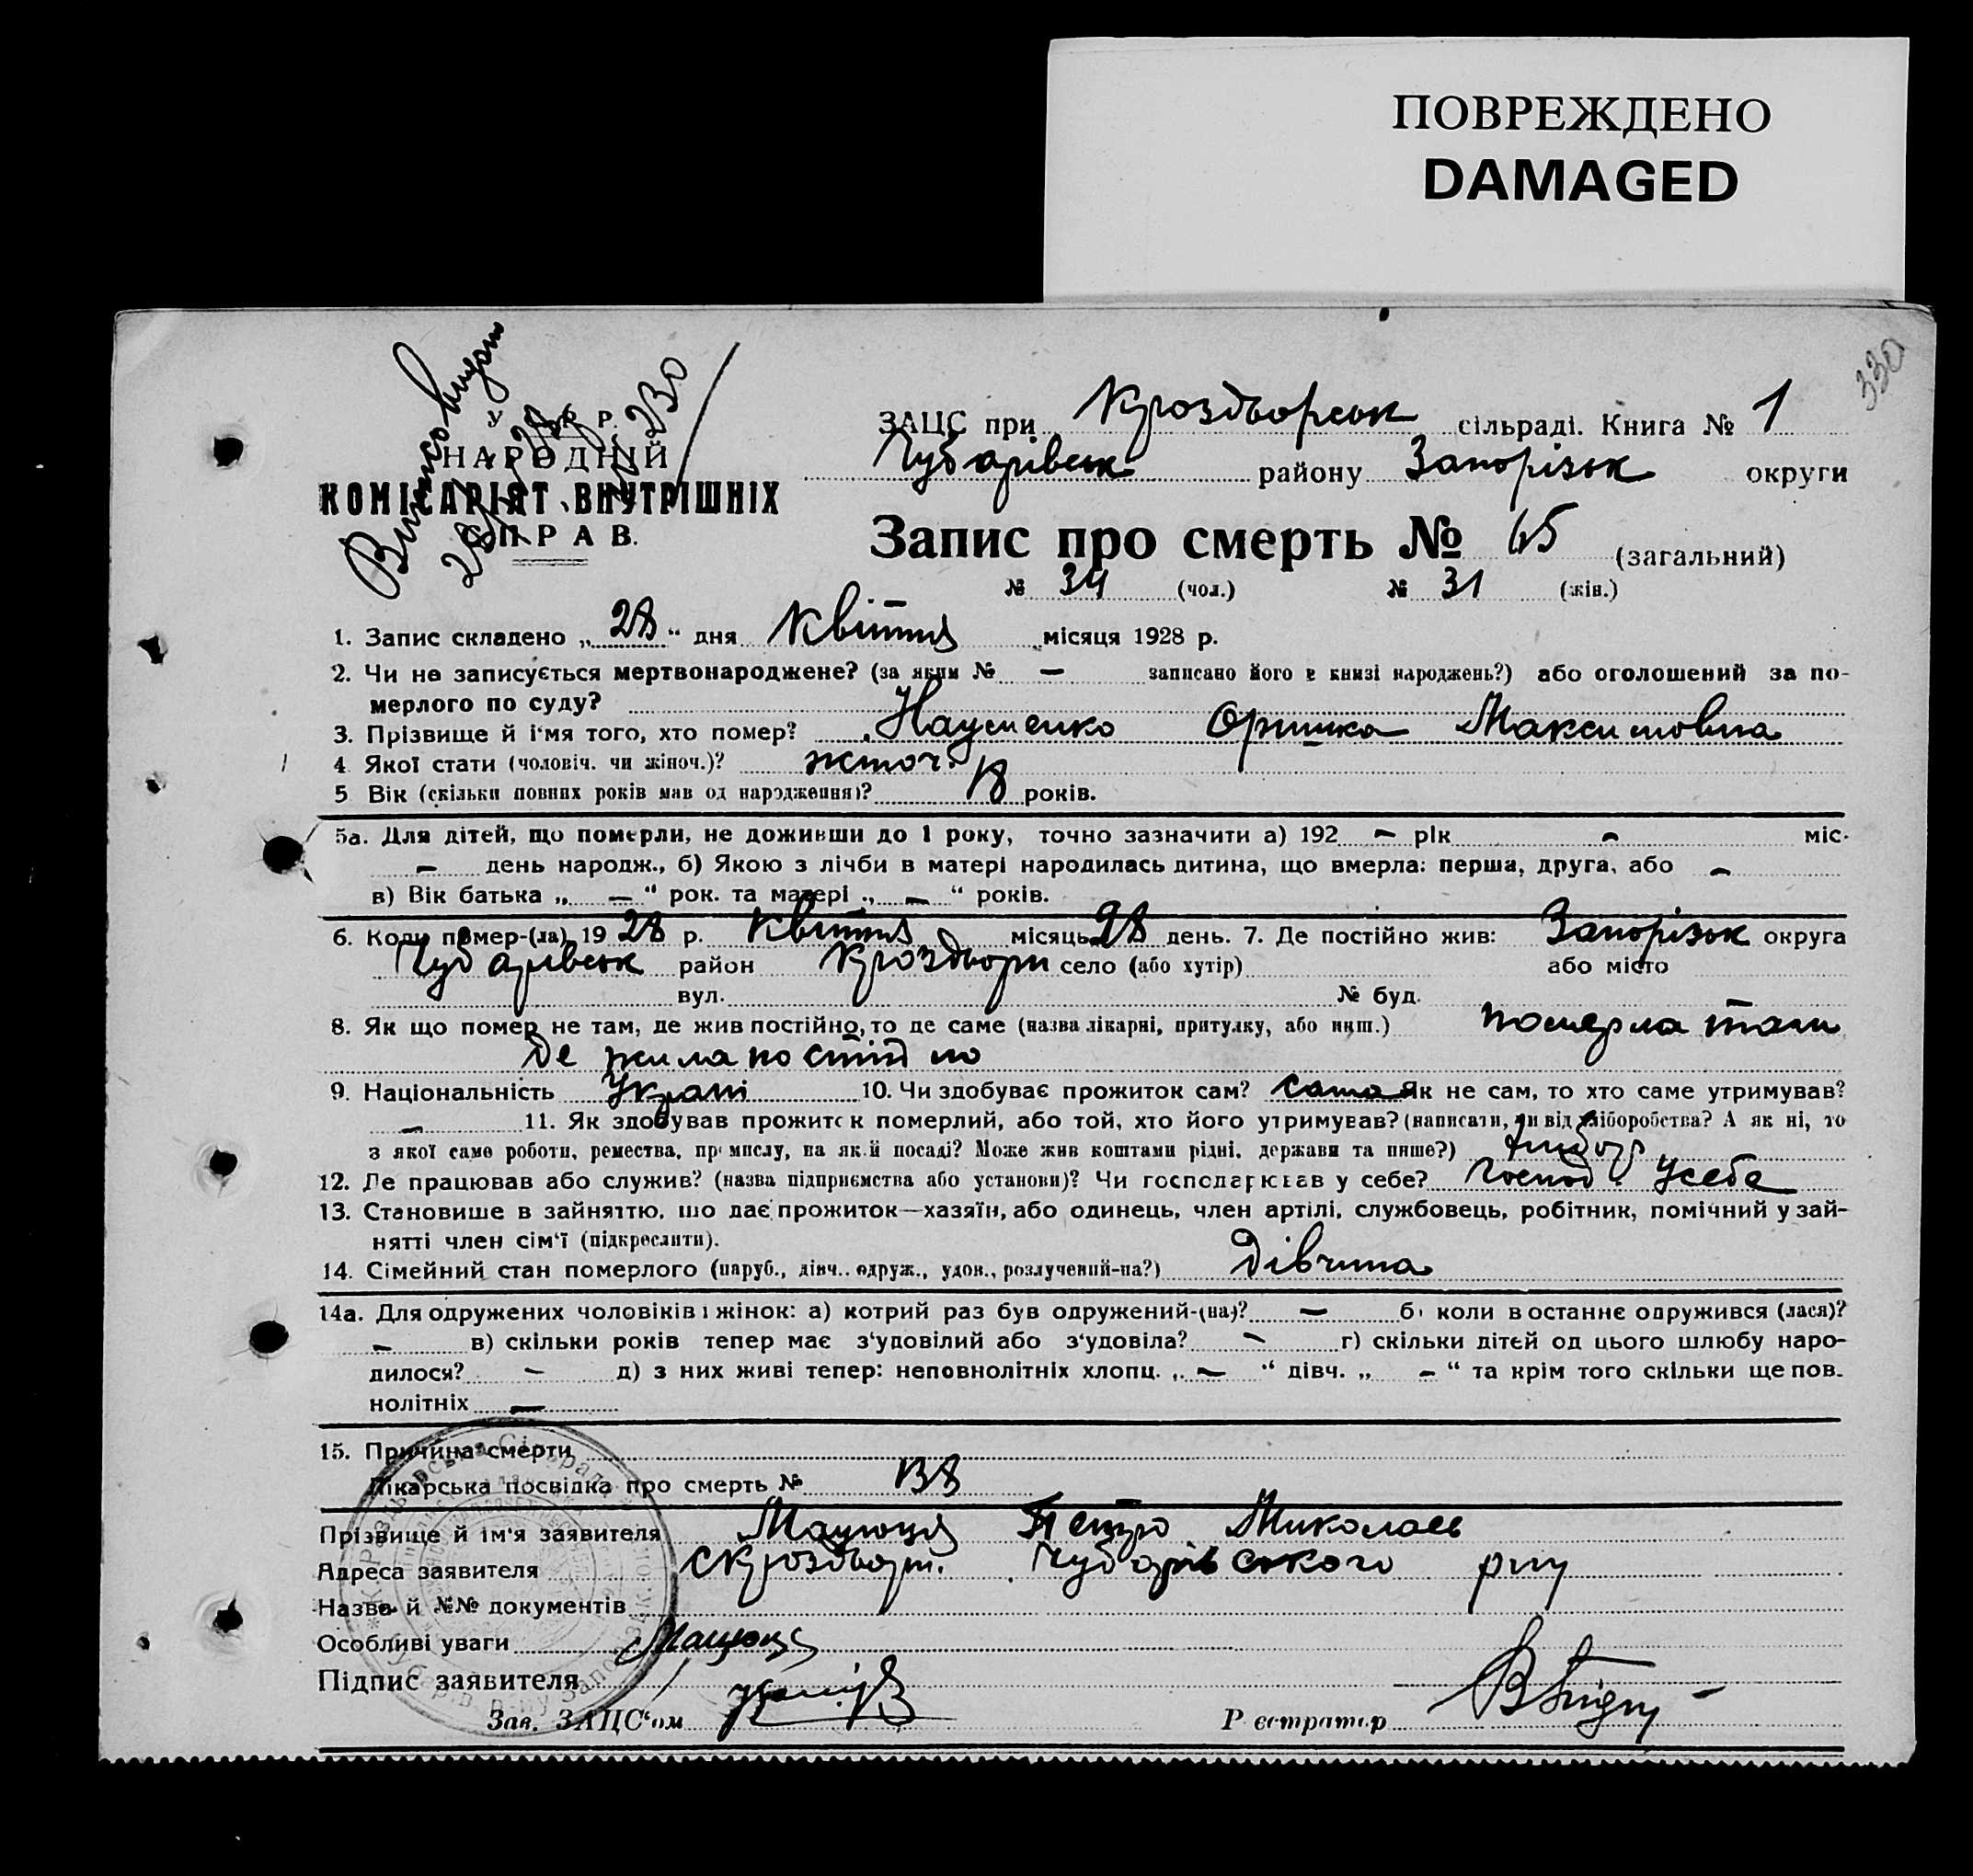 ПОВРЕЖДЕНО
DAMAGED
330
ЗАЦС при Кроздворськ сільраді. Книга № 1
Чубарівськ району Запорізьк округи
НАРОДНІЙ
КОМІСАРІЯТ ВНУТРІШНІХ
СПРАВ.
Запис про смерть № 65 (загальний)
№ 34 (чол.) № 31 (жін.)
1. Запис складено „ 28 “ дня Квітня місяця 1928 р.
2. Чи не записується мертвонароджене? (за яким № — записано його в книзі народжень?) або оголошений за по-
мерлого по суду?
3. Прізвище й і'мя того, хто помер? Науменко Оришка Максимовна
4 Якої стати (чоловіч. чи жіноч.)? жіноч.
5 Вік (скільки повних років мав од народження)? 18 років.
5а. Для дітей, що померли, не доживши до 1 року, точно зазначити а) 192 — рік — міс.
— день народж., б) Якою з лічби в матері народилась дитина, що вмерла: перша, друга, або —
в) Вік батька „ — “ рок. та матері „ — “ років.
6. Коли помер-(ла) 19 28 р. Квітня місяць 28 день. 7. Де постійно жив: Запорізьк округа
Чубарівськ район Кроздвори село (або хутір) або місто
вул. № буд.
8. Як що помер не там, де жив постійно, то де саме (назва лікарні, притулку, або инш.) померла там
де жила постійно
9. Національність Украі 10. Чи здобуває прожиток сам? сама Як не сам, то хто саме утримував?
— 11. Як здобував прожиток померлий, або той, хто його утримував? (написати, чи від хліборобства? А як ні, то
з якої саме роботи, ремества, промислу, на якій посаді? Може жив коштами рідні, держави та инше?) хлібор
12. Де працював або служив? (назва підприємства або установи)? Чи господарював у себе? Господ. Усебе
13. Становище в зайняттю, що дає прожиток—хазяїн, або одинець, член артілі, службовець, робітник, помічний у зай-
нятті член сім‘ї (підкреслити).
14. Сімейний стан померлого (паруб., дівч., одруж., удов., розлучений-на?) Дівчина
14а. Для одружених чоловіків і жінок: а) котрий раз був одружений-(на)? — б) коли в останнє одружився (лася)?
— в) скільки років тепер має з‘удовілий або з‘удовіла? — г) скільки дітей од цього шлюбу наро-
дилося? — д) з них живі тепер: неповнолітніх хлопц. „ — “ дівч. „ — “ та крім того скільки ще пов.
нолітніх —
15. Причина смерти
Лікарська посвідка про смерть №
Прізвище й ім'я заявителя Мацюця Петро Миколаєв
Адреса заявителя с Кроздвори. Чубарівського рну
Назва й №№ документів
Особливі уваги
Підпис заявителя Мацюця
Зав. ЗАЦС‘ом
Реєстратор